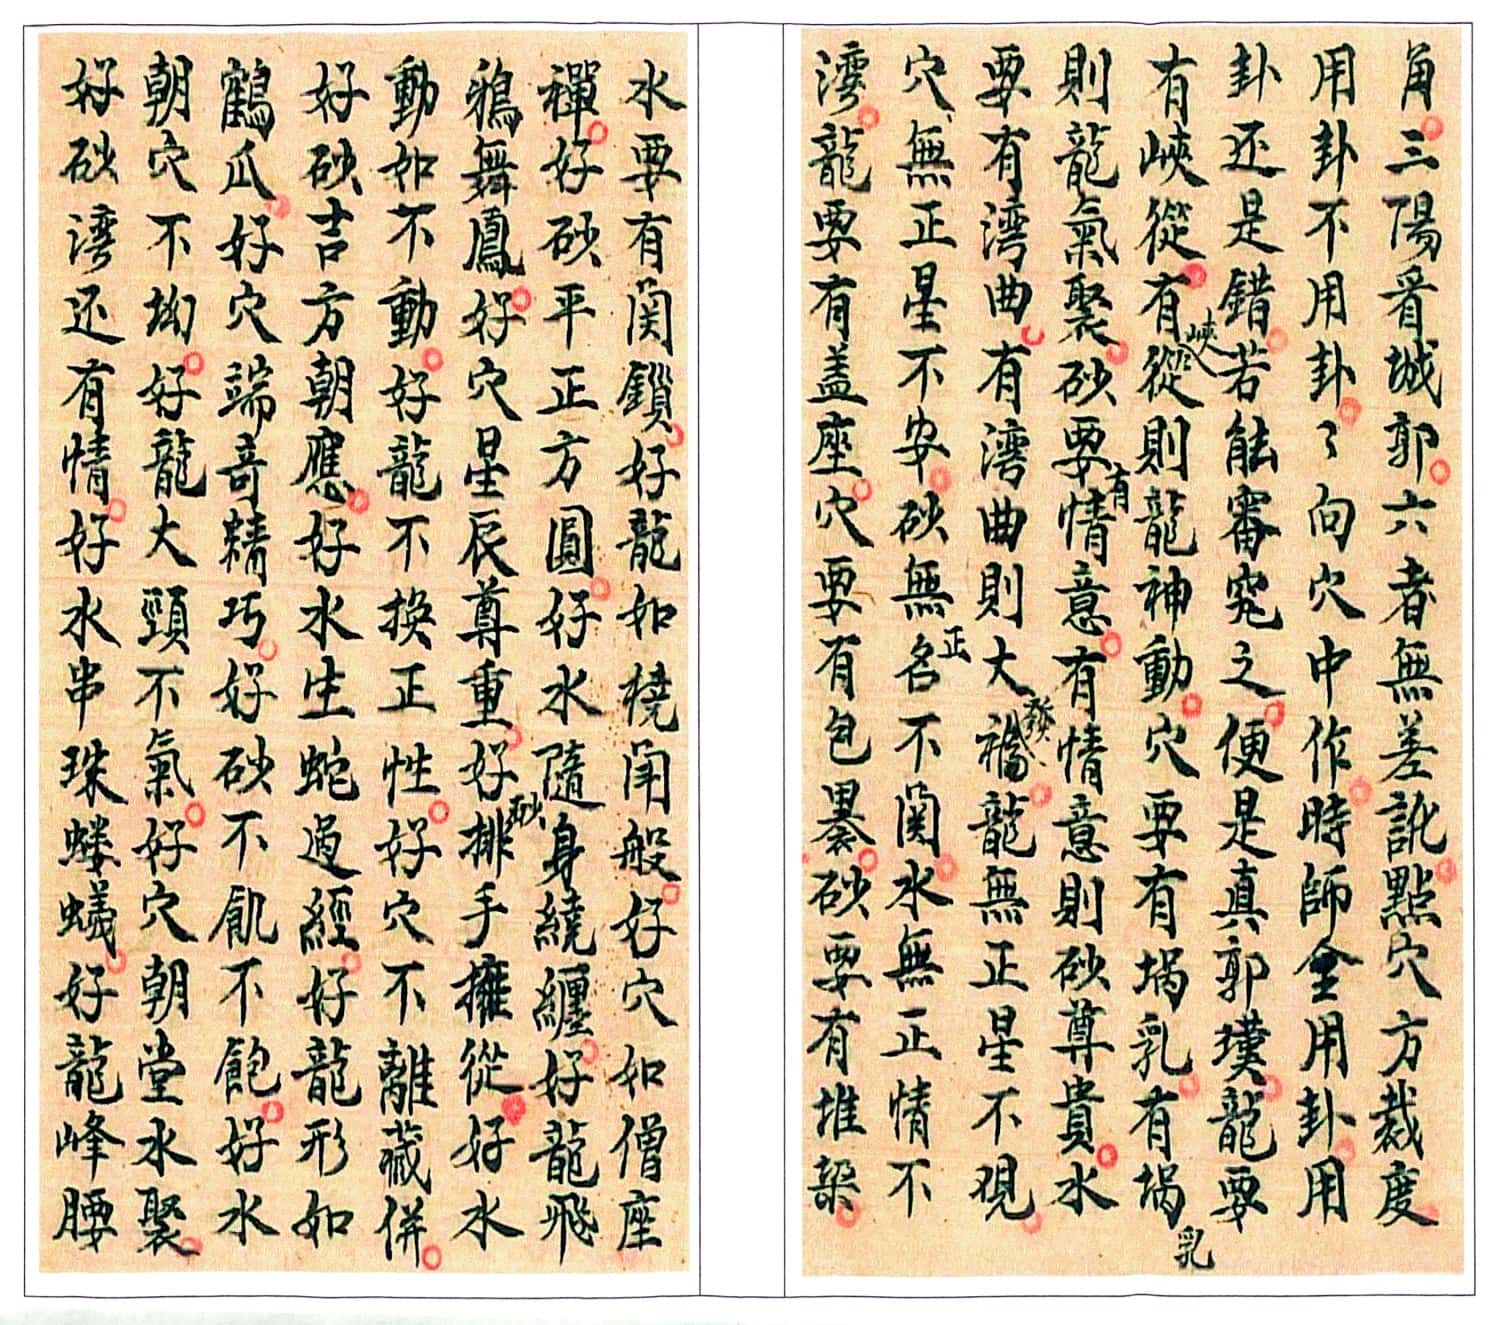 角三陽看城郭六者無差訛點穴方裁度
用卦不用卦々向穴中作時師全用卦用
卦还是錯若能審究之便是真郭璞龍要
有峽從有峽從則龍神動穴要有堝乳有堝乳
則龍氣聚砂要有情意有情意則砂尊貴水
要有湾曲有湾曲則大發福龍無正星不覌
穴無正星不安砂無正名不関水無正情不
湾龍要有盖座穴要有包裹砂要有堆
水要有関鎖好龍如橈闹般好穴如僧座
禪好砂平正方圓好水隨身繞纏好龍飛
鴉舞鳳好穴星辰尊重好砂排手擁從好水
動如不動好龍不換正性好穴不離藏併
好砂吉方朝應好水生蛇過經好龍形如
鶴瓜好穴端奇精巧好砂不飢不飽好水
朝穴不拗好龍大頸不氣好穴朝堂水聚
好砂湾还有情好水串珠蝼蟻好龍峰腰